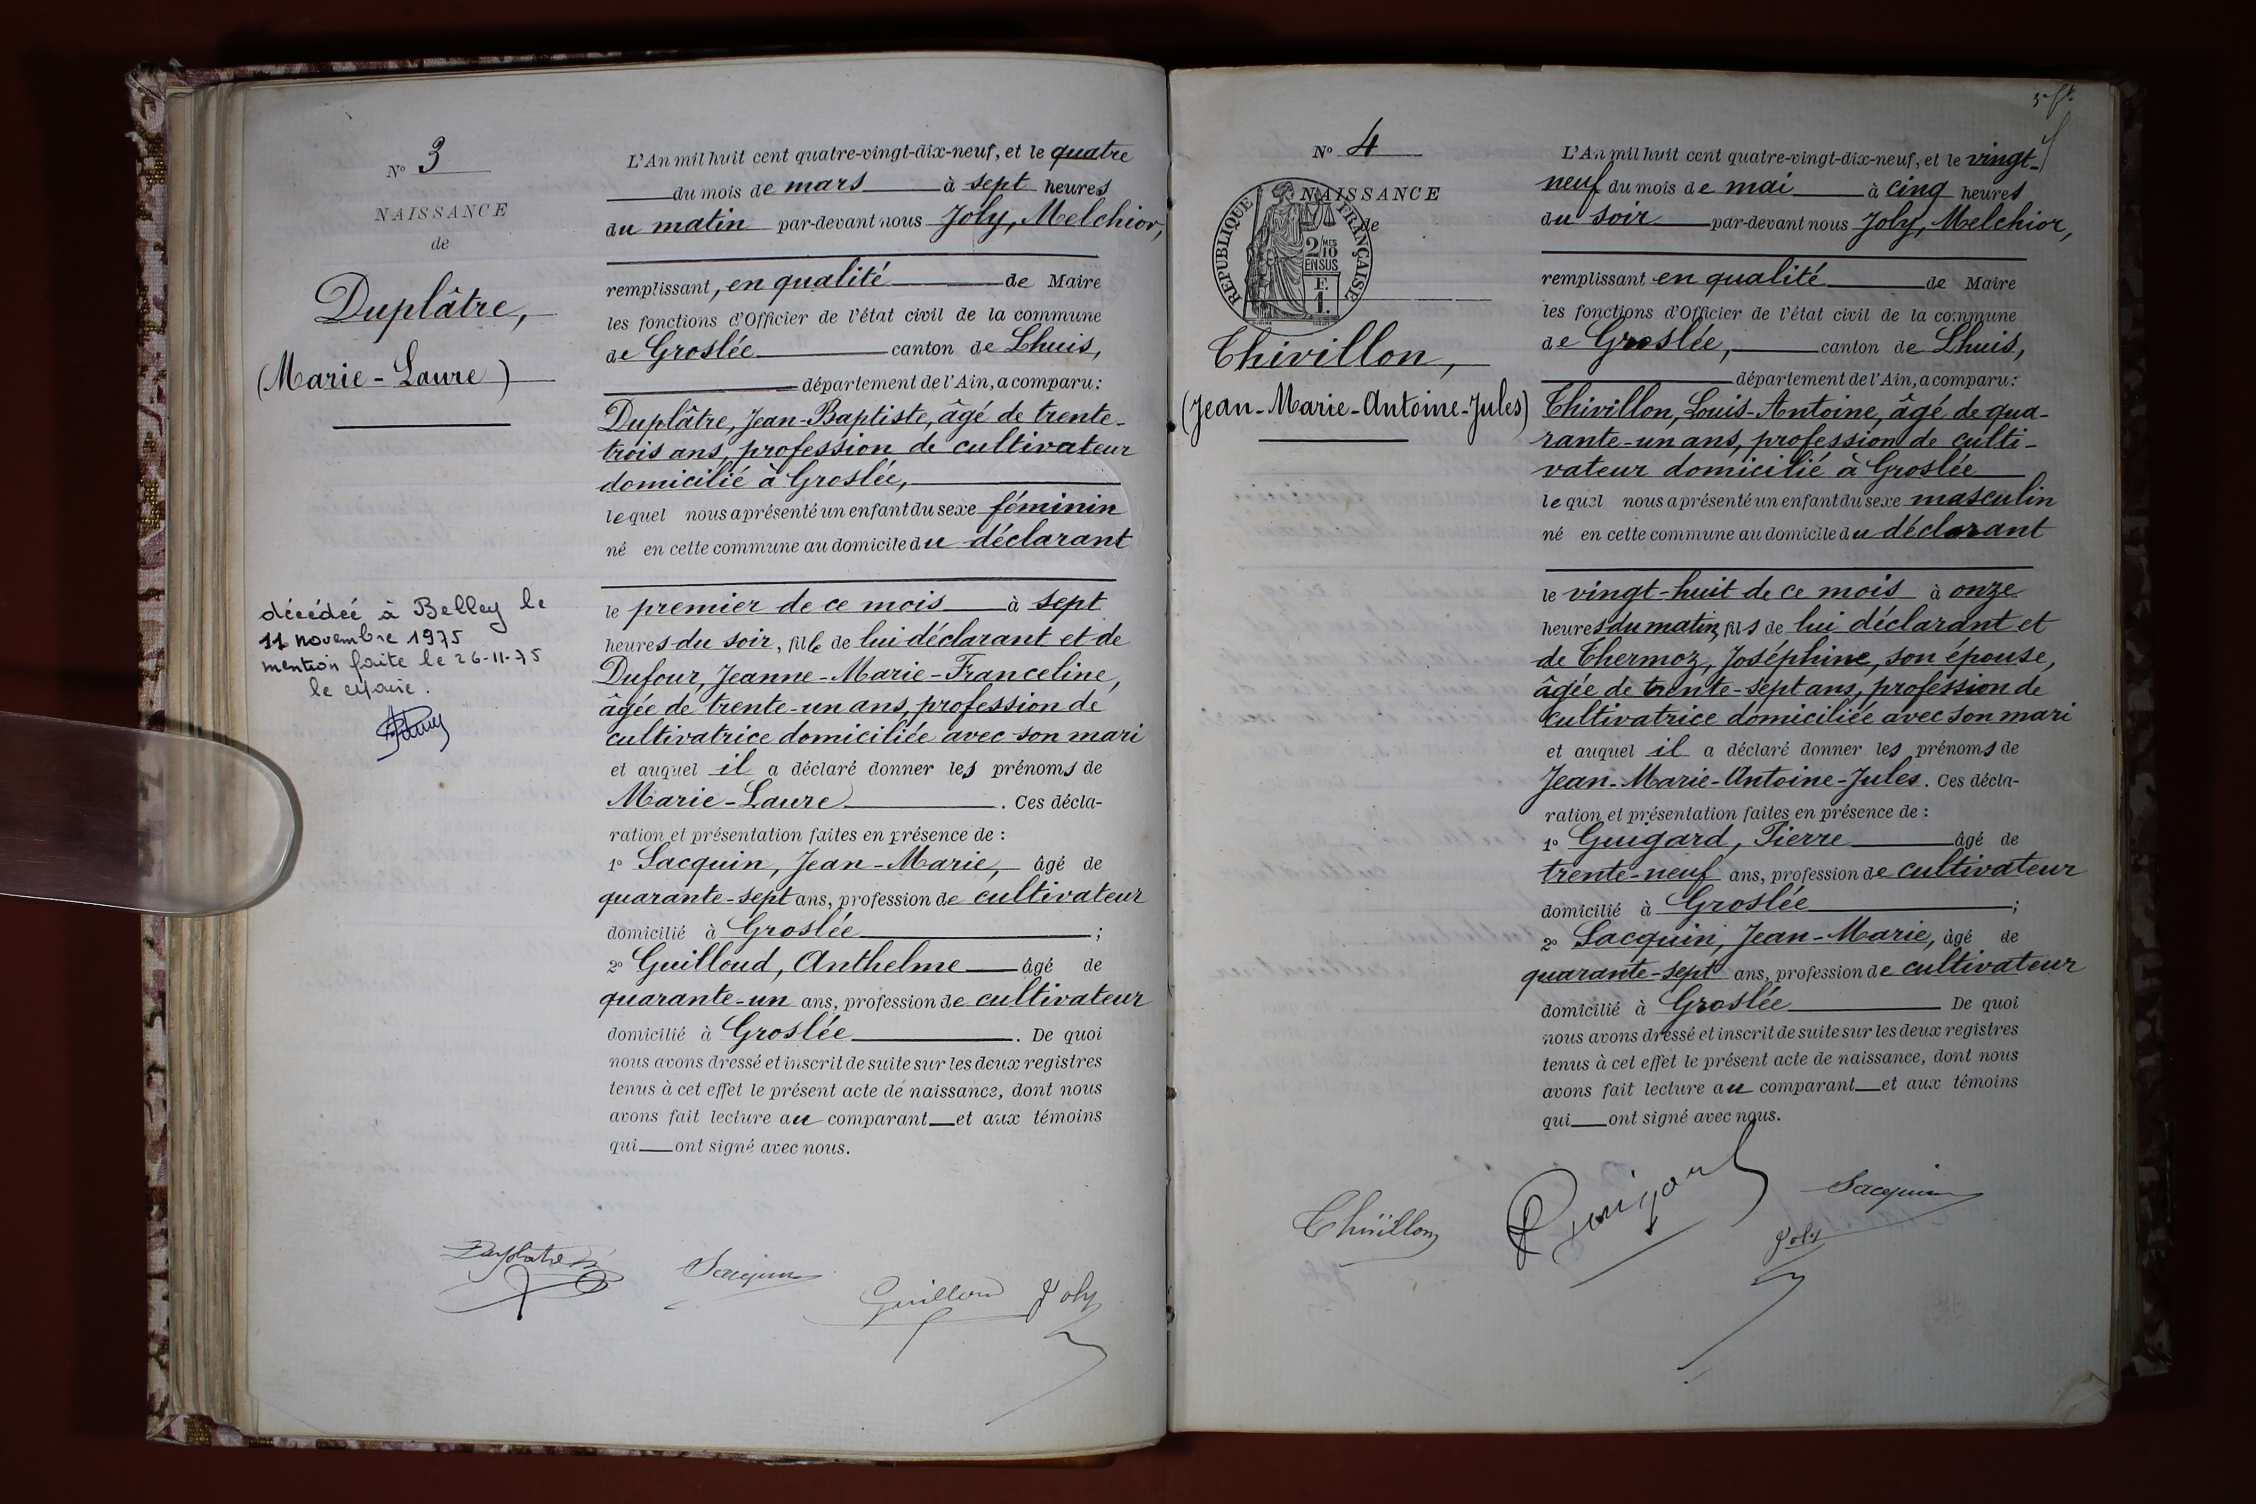 N° 3
NAISSANCE
de
Duplâtre,
(Marie-Laure)
décédée à Belley le
11 novembre 1975
mention faite le 26-11-75
le Maire.
L'An mil huit cent quatre-vingt-dix-neuf, et le quatre
du mois de mars à sept heures
du matin par-devant nous Joly, Melchior,
remplissant, en qualité de Maire
les fonctions d'Officier de l'état civil de la commune
de Groslée canton de Lhuis,
département de l'Ain, a comparu:
Duplâtre, Jean-Baptiste, âgé de trente-
trois ans, profession de cultivateur
domicilié à Groslée,
lequel nous a présenté un enfant du sexe féminin
né en cette commune au domicile du déclarant
le premier de ce mois à sept
heures du soir, fille de lui déclarant et de
Dufour, Jeanne-Marie-Franceline,
âgée de trente-un ans, profession de
cultivatrice domiciliée avec son mari
et auquel il a déclaré donner les prénoms de
Marie-Laure. Ces décla-
ration et présentation faites en présence de :
1° Sacquin, Jean-Marie, âgé de
quarante-sept ans, profession de cultivateur
domicilié à Groslée ;
2° Guilloud, Anthelme âgé de
quarante-un ans, profession de cultivateur
domicilié à Groslée. De quoi
nous avons dressé et inscrit de suite sur les deux registres
tenus à cet effet le présent acte de naissance, dont nous
avons fait lecture au comparant et aux témoins
qui ont signé avec nous.
Duplatre
Sacquin
Guilloud
Joly
5
N° 4
NAISSANCE
de
REPUBLIQUE FRANÇAISE
2/10 MES
EN SUS
F.
1.
Thivillon,
(Jean-Marie-Antoine-Jules)
L'An mil huit cent quatre-vingt-dix-neuf, et le vingt-
neuf du mois de mai à cinq heures
du soir par-devant nous Joly, Melchior,
remplissant en qualité de Maire
les fonctions d'Officier de l'état civil de la commune
de Groslée, canton de Lhuis,
département de l'Ain, a comparu:
Thivillon, Louis-Antoine, âgé de qua-
rante-un ans, profession de culti-
vateur domicilié à Groslée
lequel nous a présenté un enfant du sexe masculin
né en cette commune au domicile du déclarant
le vingt-huit de ce mois à onze
heures du matin, fils de lui déclarant et
de Thermoz, Joséphine, son épouse,
âgée de trente-sept ans, profession de
cultivatrice domiciliée avec son mari
et auquel il a déclaré donner les prénoms de
Jean-Marie-Antoine-Jules. Ces décla-
ration et présentation faites en présence de :
1° Guigard, Pierre âgé de
trente-neuf ans, profession de cultivateur
domicilié à Groslée ;
2° Sacquin, Jean-Marie, âgé de
quarante-sept ans, profession de cultivateur
domicilié à Groslée De quoi
nous avons dressé et inscrit de suite sur les deux registres
tenus à cet effet le présent acte de naissance, dont nous
avons fait lecture au comparant et aux témoins
qui ont signé avec nous.
Thivillon
Guigard
Sacquin
Joly